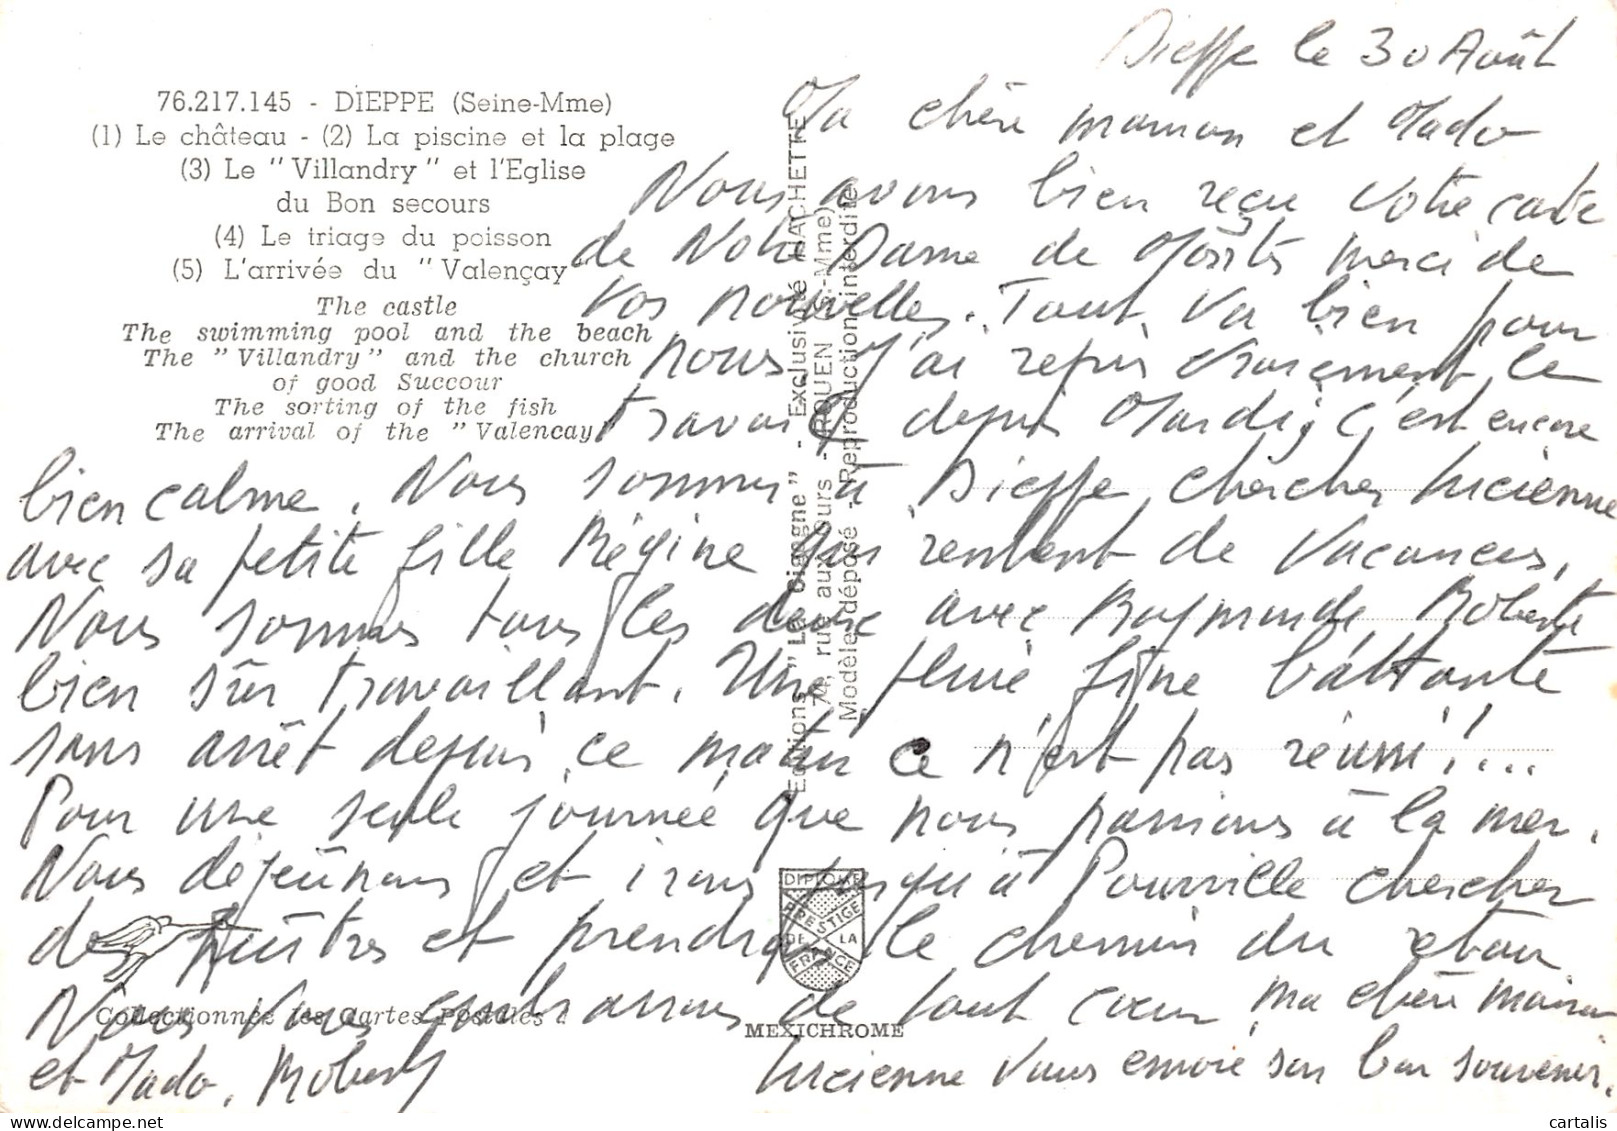 Dieppe le 30 Août
Ma chère maman et Mado
Nous avons bien reçu votre carte
de Notre Dame de merci de
vos nouvelles. Tout va bien pour
nous. J'ai repris vraiment le
travail depuis Mardi, c'est encore
bien calme. Nous sommes à Dieppe chercher Lucienne
avec sa petite fille Régine qui rentrent de vacances,
Nous sommes tous les deux avec Raymonde, Roberte
bien sûr travaillant. Une pluie fine battante
sans arrêt depuis ce matin ce n'est pas réussi!...
Pour une seule journée que nous passions à la mer.
Nous déjeûnons et irons jusqu'à Pourville chercher
des huîtres et prendre le chemin du retour
Nous vous embrassons de tout cœur ma chère maman
et Mado. Robert
Lucienne vous envoie son bon souvenir.
76.217.145 - DIEPPE (Seine-Mme)
(1) Le château - (2) La piscine et la plage
(3) Le "Villandry" et l'Eglise
du Bon secours
(4) Le triage du poisson
(5) L'arrivée du "Valençay"
The castle
The swimming pool and the beach
The "Villandry" and the church
of good Succour
The sorting of the fish
The arrival of the "Valencay"
Editions "La Cigogne" - Exclusivité HACHETTE
74, rue aux Ours - ROUEN (S.-Mme)
Modèle déposé - Reproduction interdite
DIPLOME
PRESTIGE
DE LA
FRANCE
Collectionnez les Cartes Postales !
MEXICHROME
© cartalis